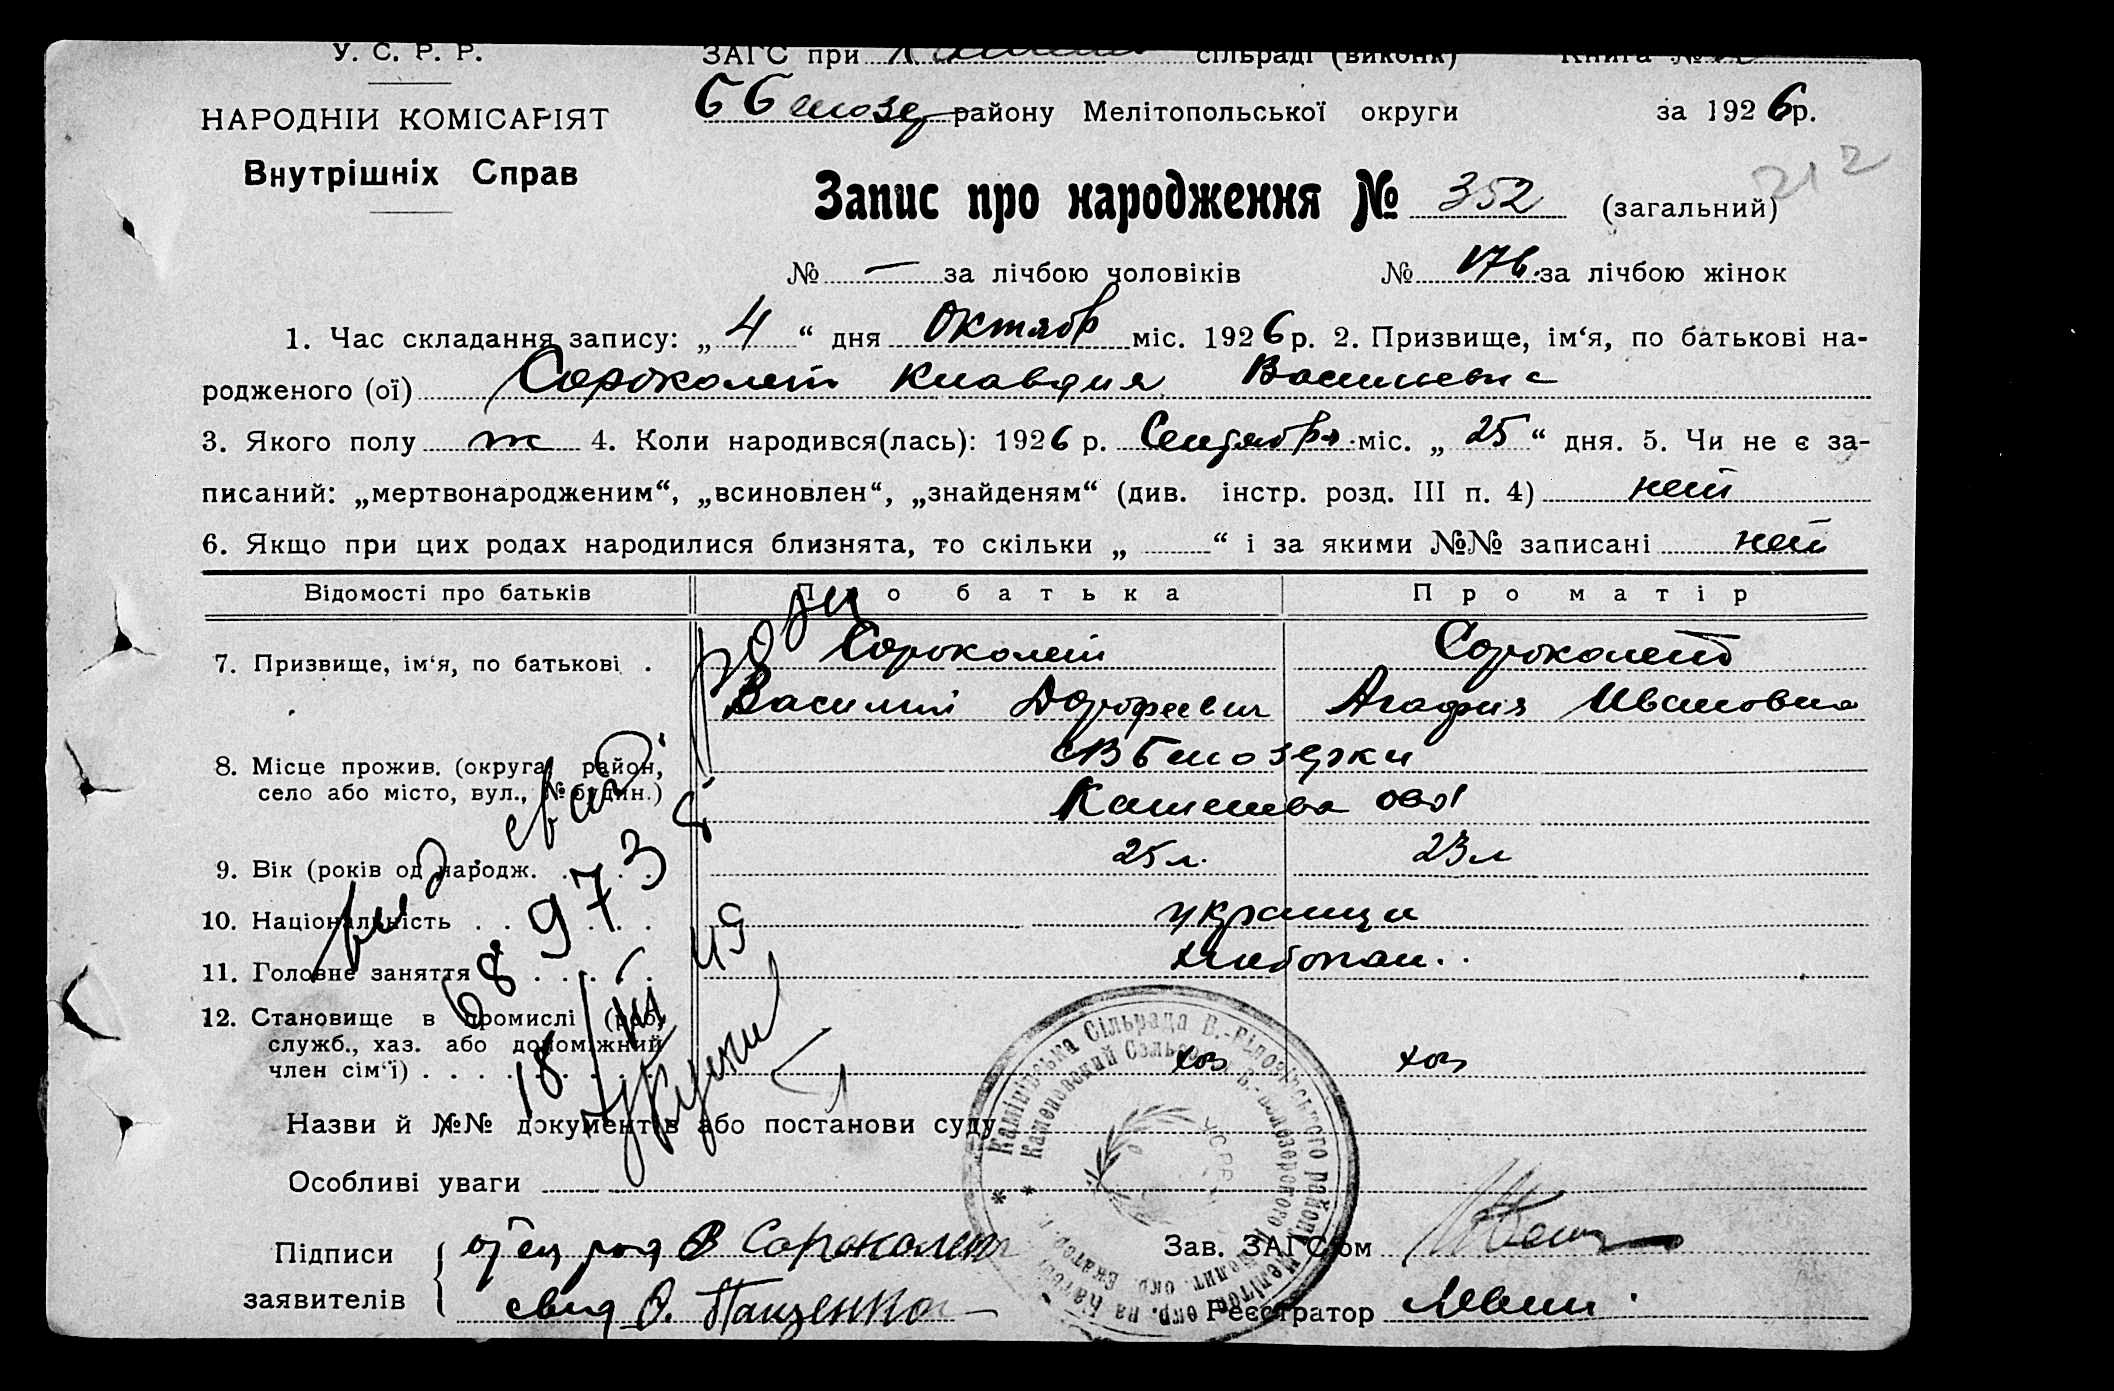 У. С. Р. Р.
НАРОДНІЙ КОМІСАРІЯТ
Внутрішніх Справ
ЗАГС при сільраді (виконк) Книга №
району Мелітопольської округи за 1926р.
212
Запис про народження № 352 (загальний)
№ — за лічбою чоловіків № 176 за лічбою жінок
1. Час складання запису: „ 4 “ дня Октябр міс. 1926 р. 2. Призвище, ім‘я, по батькові на-
родженого (ої) Сороколет Клавдия Василиевна
3. Якого полу ж 4. Коли народився(лась): 1926 р. Сентября міс. „ 25 “ дня. 5. Чи не є за-
писаний: „мертвонародженим“, „всиновлен“, „знайденям“ (див. інстр. розд. III п. 4) нет
6. Якщо при цих родах народилися близнята, то скільки „ “ і за якими №№ записані нет
Відомості про батьків Про батька Про матір
7. Призвище, ім‘я, по батькові . Сороколет Сороколет
Василий Дорофеевич Агафия Ивановна
8. Місце прожив. (округа, район, Вбелозерки
село або місто, вул., № будин.)
9. Вік (років од народж. 25 л. 23 л
10. Національність украинцы
11. Головне заняття хлебопаш.
12. Становище в промислі (роб.,
служб., хаз. або допоміжний
член сім‘ї) хоз хоз
Назви й №№ документів або постанови суду
Особливі уваги
Підписи
заявителів
отец В Сороколет
свид О. Панченко
Зав. ЗАГС‘ом
Реєстратор
Камінівська Сільрада В.-Білозірського району
Каменовский Сельсовет
УСРР